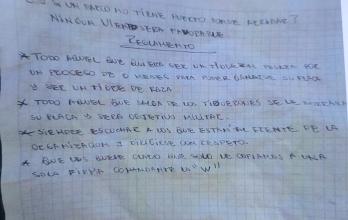 SI UN BARCO NO TIENE PUERTO DONDE ARRIBAR?
NINGUN VIENTO SERA FAVORABLE
REGLAMENTO
* TODO AQUEL QUE QUIERA SER UN TIGUERON PASARA POR
UN PROCESO DE 6 MESES PARA PODER GANARSE SU PLACA
Y SER UN TIGRE DE RAZA
* TODO AQUEL QUE SALGA DE LOS TIGUERONES SE LE
SU PLACA Y SERA OBJETIVO MILITAR.
* SIEMPRE ESCUCHAR A LOS QUE ESTAN AL FRENTE DE LA
ORGANIZACION Y DIRIGIRSE CON RESPETO.
* QUE LES QUEDE CLARO QUE SOLO LE COPIAMOS A UNA
SOLA FIRMA COMANDANTE "W"